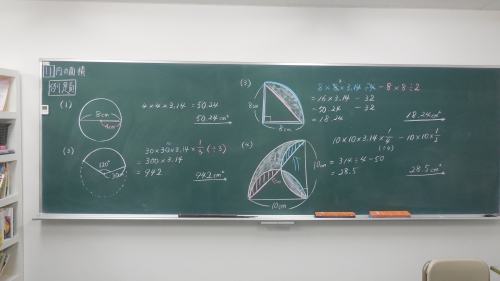 1 円の面積
例題
(1)
8cm
4cm
4×4×3.14 = 50.24
50.24cm²
(2)
120°
30cm
30×30×3.14×1/3 (÷3)
= 300×3.14
= 942
942cm²
(3)
8cm
8cm
8×8×3.14÷4 - 8×8÷2
= 16×3.14 - 32
= 50.24 - 32
= 18.24
18.24cm²
(4)
10cm
10cm
10×10×3.14×1/4 - 10×10×1/2
(÷4)
= 314÷4-50
= 28.5
28.5cm²